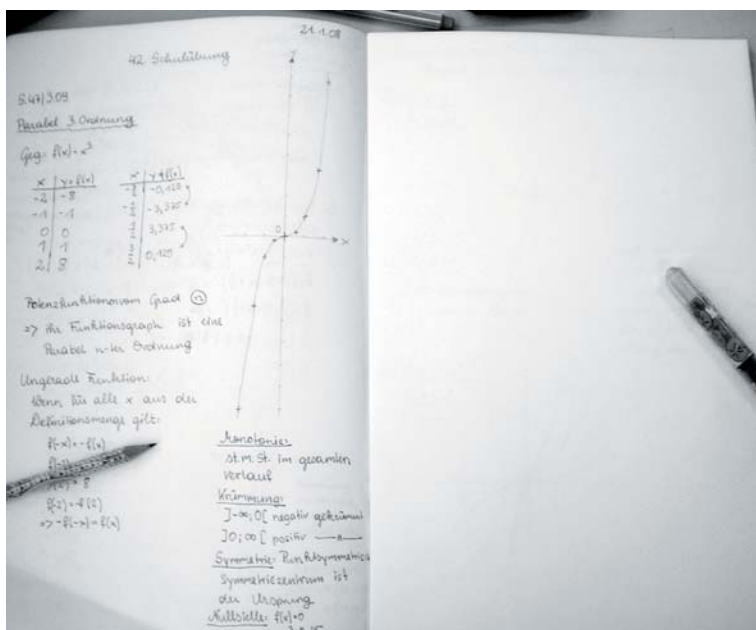 21.1.08
42. Schulübung
S.47/3.09
Parabel 3. Ordnung
Geg: f(x)=x³
x | y=f(x)
-2 | -8
-1 | -1
0 | 0
1 | 1
2 | 8
x | y=f(x)
-0,125
-3,375
3,375
0,125
y
0
x
Potenzfunktion vom Grad n
=> ihr Funktionsgraph ist eine
Parabel n-ter Ordnung
Ungerade Funktion:
Wenn für alle x aus der
Definitionsmenge gilt:
f(-x)=-f(x)
= 8
f(-2)=-f(2)
=> -f(-x)=f(x)
Monotonie:
st.m.St. im gesamten
Verlauf
Krümmung:
]-∞;0[ negativ gekrümmt
]0;∞[ positiv —"—
Symmetrie: Punktsymmetrie
Symmetriezentrum ist
der Ursprung
Nullstelle: f(x)=0